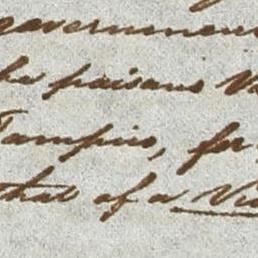 governmen
he paisans Va
Tampico, for
that of a Vi